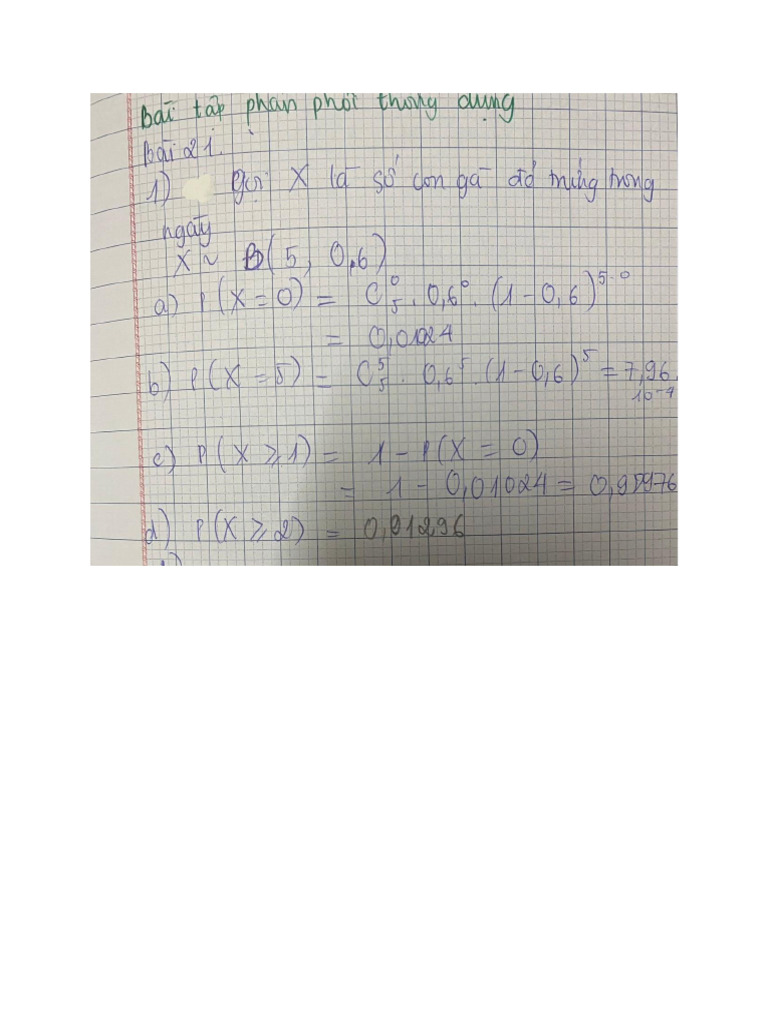 Bài tập phân phối thông dụng
Bài 21.
1) Gọi X là số con gà đẻ trứng trong
ngày
X ~ B(5, 0,6)
a) P(X = 0) = C⁰₅ . 0,6⁰ . (1 - 0,6)⁵⁻⁰
= 0,01024
b) P(X = 5) = C⁵₅ . 0,6⁵ . (1 - 0,6)⁵ = 7,96.
10⁻⁴
c) P(X ≥ 1) = 1 - P(X = 0)
= 1 - 0,01024 = 0,98976
d) P(X ≥ 2) = 0,91296